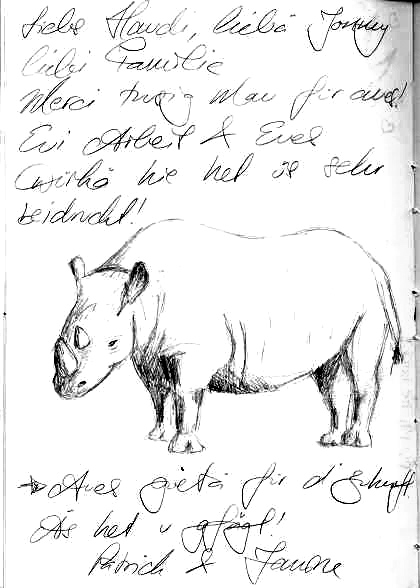 Liebe Haudi, liebä Jonny
liebi Familie
Merci tusig Mau für aues!
Eui Arbeit & Eues
Gwirkä hie het üs sehr
beidruckt!
Aues guetä für d'Zukunft
Äs het ü gfägt!
Patrick & Simone